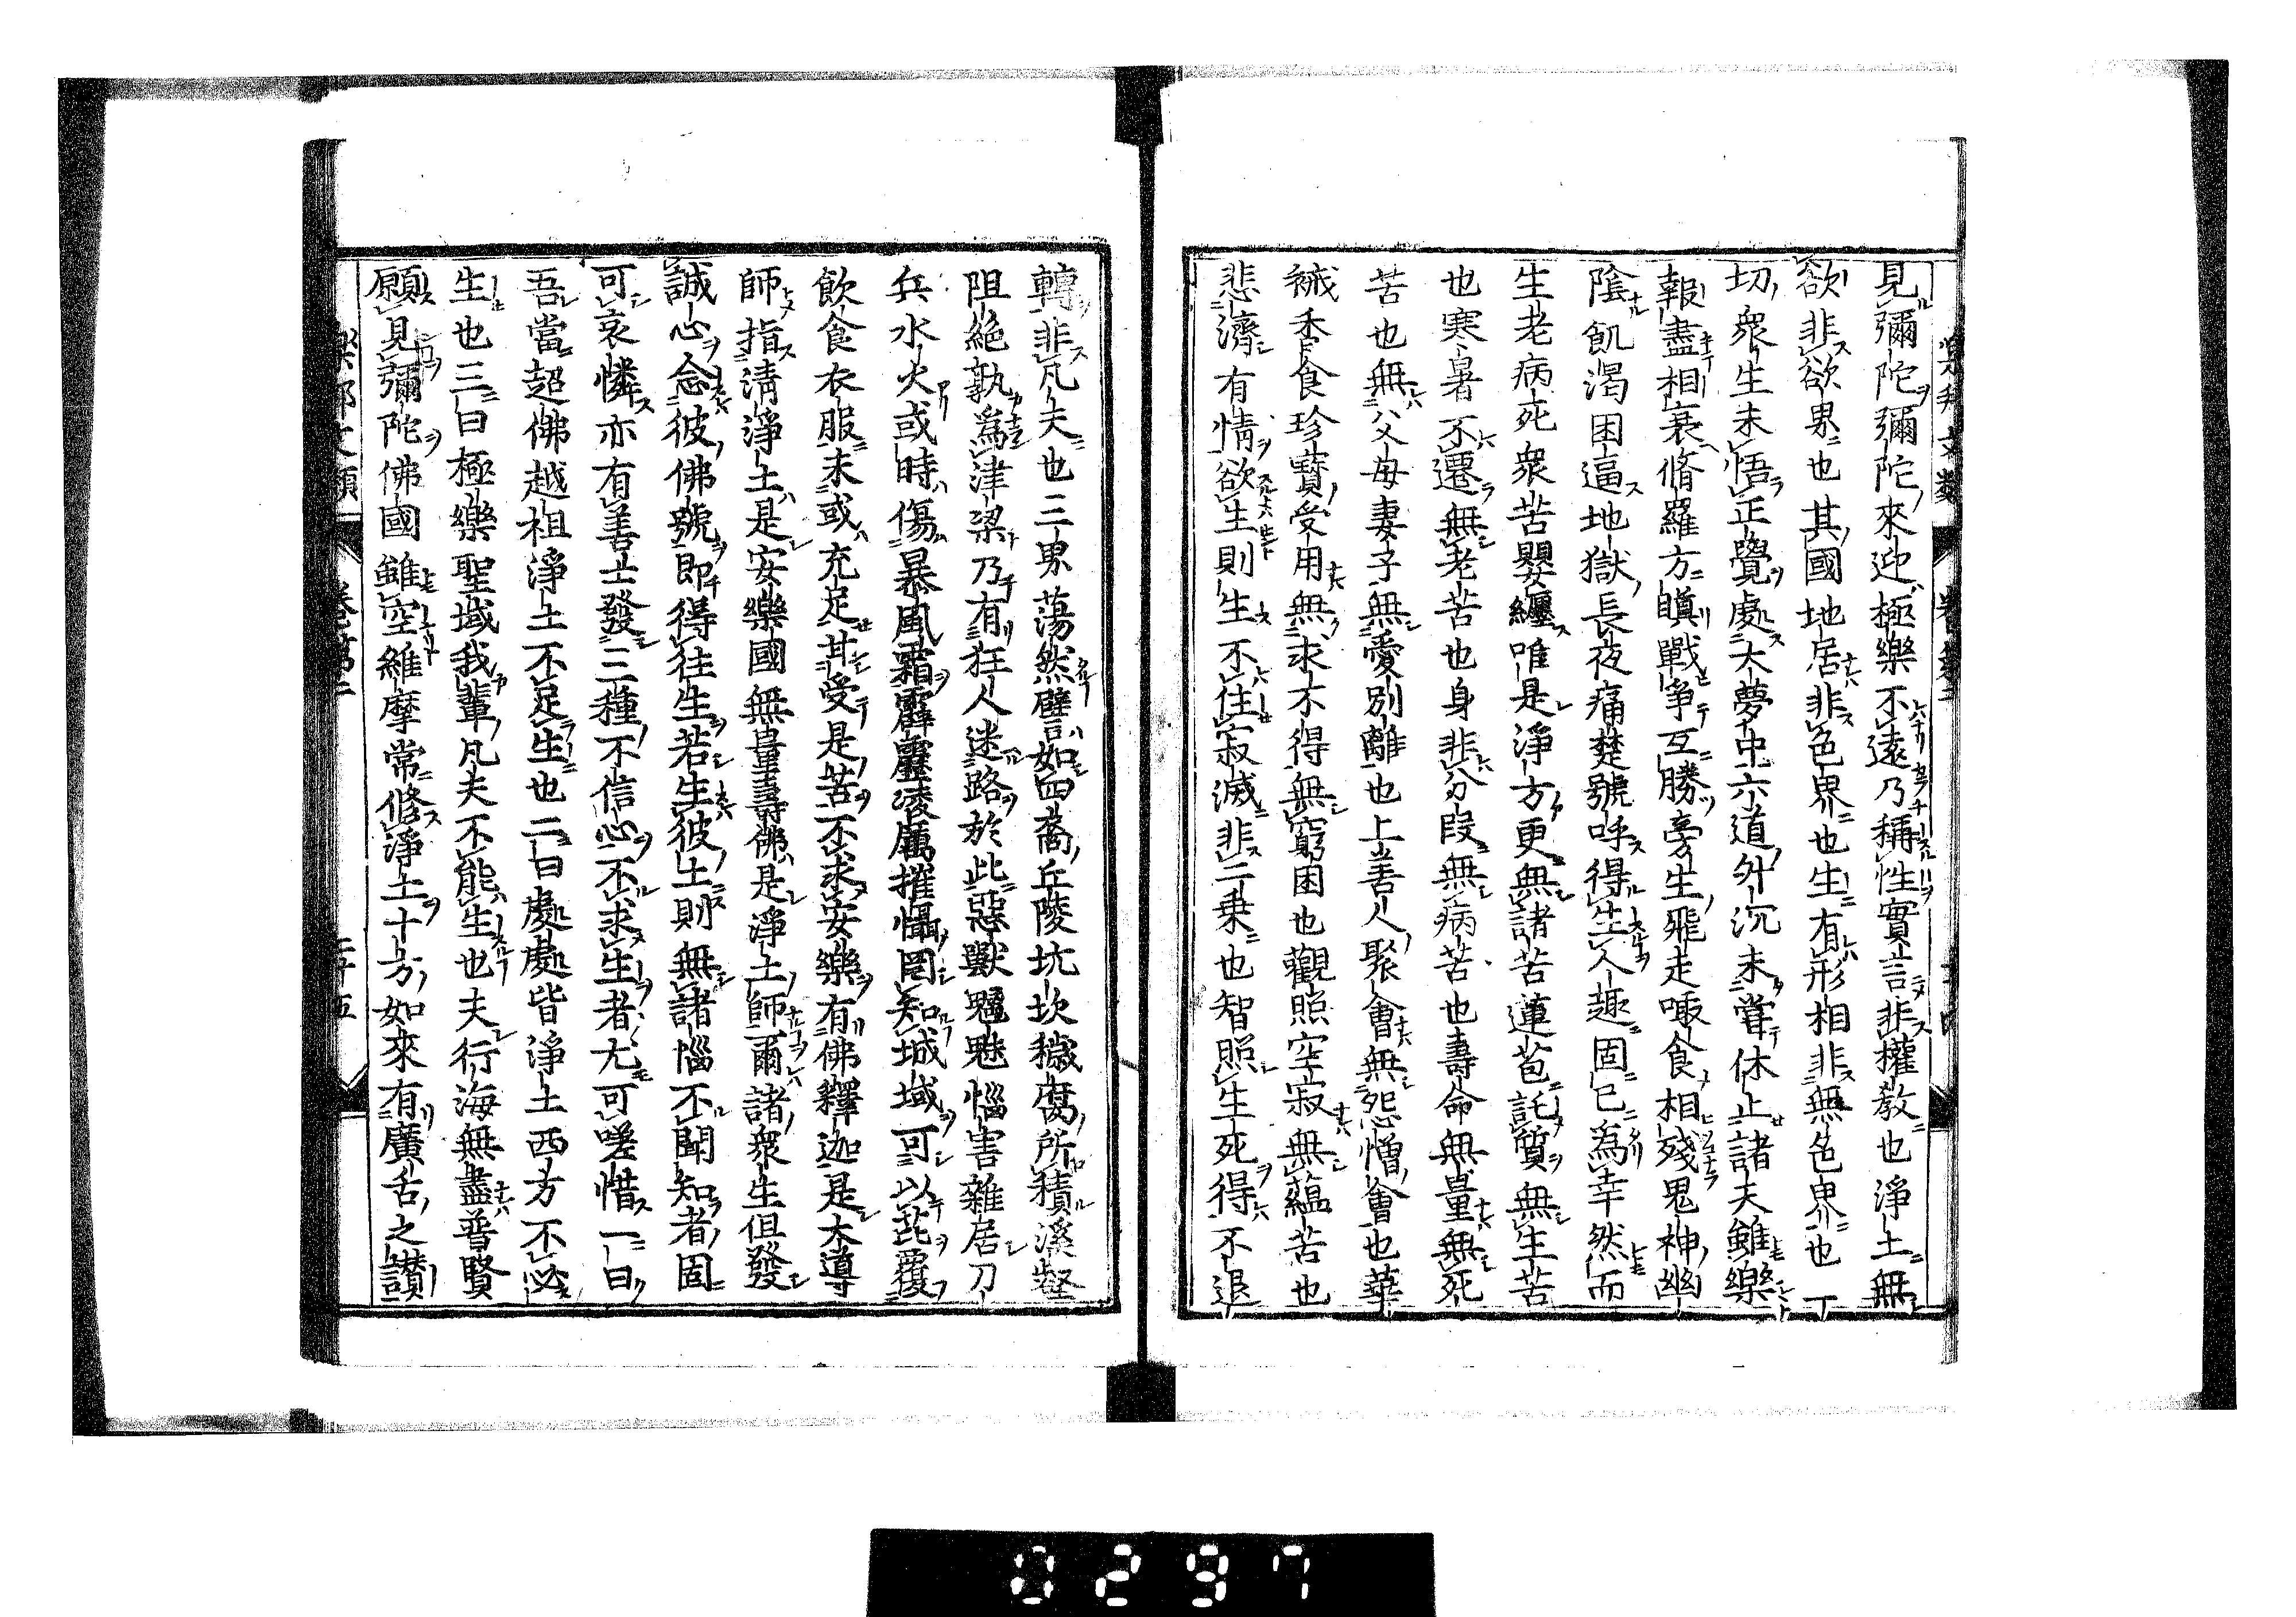 見彌陀彌陀來迎極樂不遠乃稱性實言非權教也淨土無
欲非欲界也其國地居非色界也生有形相非無色界也一
切衆生未悟正覺處大夢中六道升沉未嘗休止諸天雖樂
報盡相衰脩羅方瞋戰爭互勝旁生飛走噉食相殘鬼神幽
陰飢渴困逼地獄長夜痛楚號呼得生人趣固已為幸然而
生老病死衆苦嬰纏唯是淨方更無諸苦蓮苞託質無生苦
也寒暑不遷無老苦也身非分段無病苦也壽命無量無死
苦也無父母妻子無愛別離也上善人聚會無怨憎會也華
裓香食珍寶受用無求不得無窮困也觀照空寂無蘊苦也
悲濟有情欲生則生不住寂滅非二乘也智照生死得不退
轉非凡夫也三界蕩然譬如四裔丘陵坑坎穢腐所積溪壑
阻絶孰為津梁乃有狂人迷路於此惡獸魑魅惱害雜居刀
兵水火或時傷暴風霜霹靂凌厲摧懾罔知城域可以芘覆
飲食衣服未或充足甘受是苦不求安樂有佛釋迦是大導
師指淸淨土是安樂國無量壽佛是淨土師爾諸衆生但發
誠心念彼佛號即得往生若生彼土則無諸惱不聞知者固
可哀憐亦有善士發三種不信心不求生者尤可嗟惜一曰
吾當超佛越祖淨土不足生也二曰處處皆淨土西方不必
生也三曰極樂聖域我輩凡夫不能生也夫行海無盡普賢
願見彌陀佛國雖空維摩常修淨土十方如來有廣舌之讃
樂邦文類 卷第二 二十五
0297